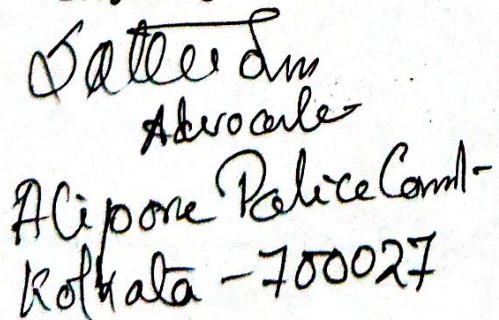 Advocate
Alipore Police Court
Kolkata - 700027